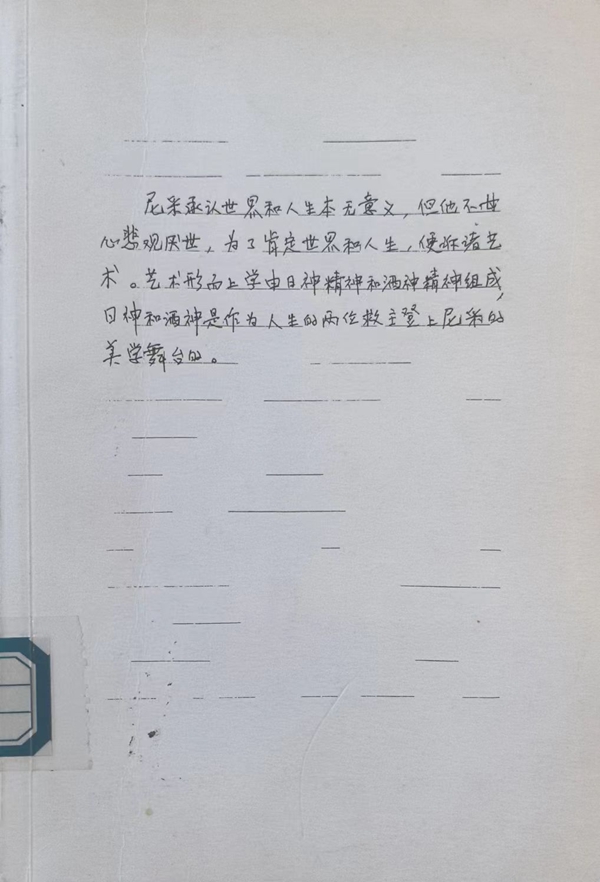 尼采承认世界和人生本无意义，但他不甘
心悲观厌世，为了肯定世界和人生，便诉诸艺
术。艺术形而上学由日神精神和酒神精神组成，
日神和酒神是作为人生的两位救主登上尼采的
美学舞台的。